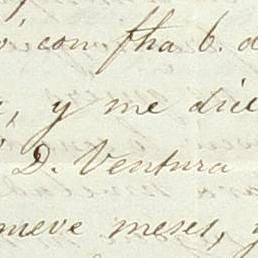 con fha 6. d
, y me dice
D. Ventura
nueve meses, y